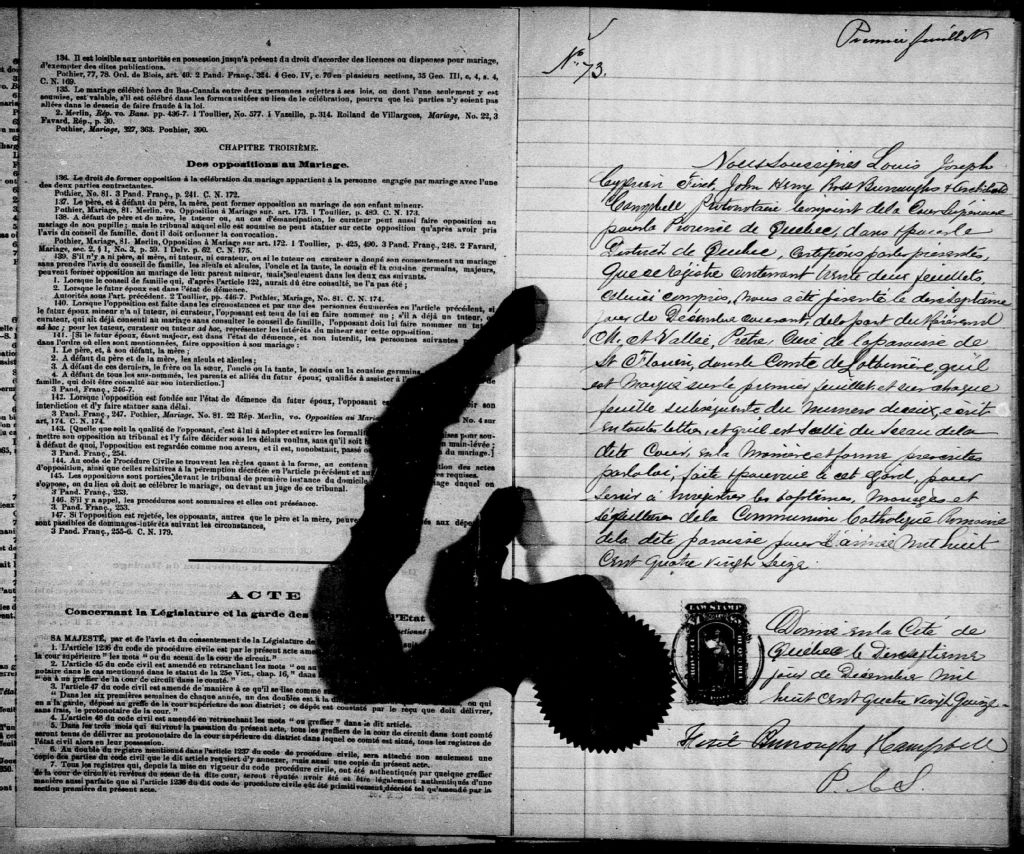 4
134. Il est loisible aux autorités en possession jusqu'à présent du droit d'accorder des licences ou dispenses pour mariage,
d'exempter des dites publications.
Pothier, 77, 78. Ord. de Blois, art. 40. 2 Pand. Franç., 324. 4 Geo. IV, c. 76 en plusieurs sections, 35 Geo. III, c, 4, s. 4,
C. N. 169.
135. Le mariage célébré hors du Bas-Canada entre deux personnes sujettes à ses lois, ou dont l'une seulement y est
soumise, est valable, s'il est célébré dans les formes usitées au lieu de la célébration, pourvu que les parties n'y soient pas
allées dans le dessein de faire fraude à la loi.
2. Merlin, Rép. vo. Bans. pp. 436-7. 1 Toullier, No. 577. 1 Vazeille, p. 314. Rolland de Villargues, Mariage, No. 22, 3
Favard, Rép., p. 30.
Pothier, Mariage, 327, 363. Pouhier, 390.
CHAPITRE TROISIÈME.
Des oppositions au Mariage.
136. Le droit de former opposition à la célébration du mariage appartient à la personne engagée par mariage avec l'une
des deux parties contractantes.
Pothier, No. 81. 3 Pand. Franç., p. 241. C. N. 172.
137. Le père, et à défaut du père, la mère, peut former opposition au mariage de son enfant mineur.
Pothier, Mariage, 81. Merlin, vo. Opposition à Mariage sur art. 173. 1 Toullier, p. 489. C. N. 173.
138. A défaut de père et de mère, le tuteur ou, au cas d'émancipation, le curateur peut aussi faire opposition au
mariage de son pupille; mais le tribunal auquel elle est soumise ne peut statuer sur cette opposition qu'après avoir pris
l'avis du conseil de famille, dont il doit ordonner la convocation.
Pothier, Mariage, 81. Merlin, Opposition à Mariage sur art. 172. 1 Toullier, p. 425, 490. 3 Pand. Franç., 248. 2 Favard,
Mariage, sec. 2, § 1, No. 3, p. 59. 1 Delv. p. 62. C. N. 175.
139. S'il n'y a ni père, ni mère, ni tuteur, ni curateur, ou si le tuteur ou curateur a donné son consentement au mariage
sans prendre l'avis du conseil de famille, les aïeuls et aïeules, l'oncle et la tante, le cousin et la cousine germains, majeurs,
peuvent former opposition au mariage de leur parent mineur, mais seulement dans les deux cas suivants.
1. Lorsque le conseil de famille qui, d'après l'article 122, aurait du être consulté, ne l'a pas été;
2. Lorsque le futur époux est dans l'état de démence.
Autorités sous l'art. précédent. 2 Toullier, pp. 446-7. Pothier, Mariage, No. 81. C. N. 174.
140. Lorsque l'opposition est faite dans les circonstances et par une des personnes énoncées en l'article précédent,
le futur époux mineur n'a ni tuteur, ni curateur, l'opposant est tenu de lui en faire nommer un; s'il a déjà un tuteur
curateur, qui ait déjà consenti au mariage sans consulter le conseil de famille, l'opposant doit lui faire nommer un tut
ad hoc; pour les tuteur, curateur ou tuteur ad hoc, représenter les intérêts du mineur sur cette opposition.
141. [Si le futur époux, étant majeur, est dans l'état de démence, et non interdit, les personnes suivantes
dans l'ordre où elles sont mentionnées, faire opposition à son mariage:
1. Le père, et, à son défaut, la mère;
2. A défaut du père et de la mère, les aïeuls et aïeules;
3. A défaut de ces derniers, le frère ou la sœur, l'oncle ou la tante, le cousin ou la cousine germains
4. A défaut de tous les sus-nommés, les parents et alliés du futur époux, qualifiés à assister à l
famille, qui doit être consulté sur son interdiction.]
3 Pand. Franç., 246-7.
142. Lorsque l'opposition est fondée sur l'état de démence du futur époux, l'opposant es er son
interdiction et d'y faire statuer sans délai.
3 Pand. Franç., 247. Pothier, Mariage, No. 81. 22 Rép. Merlin, vo. Opposition au Mariage No. 4 sur
art. 174. C. N. 174.
143. [Quelle que soit la qualité de l'opposant, c'est à lui à adopter et suivre les formalités
mettre son opposition au tribunal et l'y faire décider sous les délais voulus, sans qu'il soit main-levée;
à défaut de quoi, l'opposition est regardée comme non avenu, et il est, nonobstant, passé du mariage.]
3 Pand. Franç., 254.
144. Au code de Procédure Civile se trouvent les règles quant à la forme, au contenu ion des actes
d'opposition, ainsi que celles relatives à la péremption décrétée en l'Article précédent et au requises.
145. Les oppositions sont portées devant le tribunal de première instance du domicile age duquel on
s'oppose, ou du lieu où doit se célébrer le mariage, ou devant un juge de ce tribunal.
3 Pand. Franç., 253.
146. S'il y a appel, les procédures sont sommaires et elles ont préséance.
3 Pand. Franç., 253.
147. Si l'opposition est rejetée, les opposants, autres que le père et la mère, peuve s aux dépe
sont passibles de dommages-intérêts suivant les circonstances,
3 Pand. Franç., 255-6. C. N. 179.
ACTE
Concernant la Législature et la garde des d'Etat
SA MAJESTÉ, par et de l'avis et du consentement de la Législature de
1. L'article 1236 du code de procédure civile est par le présent acte amend
la cour supérieure" les mots "ou du sceau de la cour de circuit."
2. L'article 45 du code civil est amendé en retranchant les mots "ou
notaire dans le cas mentionné dans le statut de la 25e Vict., chap. 16," dans
"on à un greffier de la cour de circuit dans le comté."
3. l'article 47 du code civil est amendé de manière à ce qu'il se lise comme s
Dans les six premières semaines de chaque année, un des doubles est à la d ou qui
en a la garde, déposé au greffe de la cour supérieure de son district; ce dépôt est constaté par le reçu que doit délivrer,
sans frais, le protonotaire de la cour."
4. L'article 48 du code civil est amendé en retranchant les mots "ou greffier" dans le dit article.
5. Dans les trois mois qui suivront la passation du présent acte, tous les greffiers de la cour de circuit dans tout comté
seront tenus de délivrer au protonotaire de la cour supérieure du district dans lequel ce comté est situé, tous les registres de
l'état civil alors en leur possession.
6. Au double du registre mentionné dans l'article 1237 du code de procédure civile, sera attaché non seulement une
copie des parties du code civil que le dit article requiert d'y annexer, mais aussi une copie du présent acte.
7. Tous les registres qui, depuis la mise en vigueur du code procédure civile, ont été authentiqués par quelque greffier
de la cour de circuit et revêtus du sceau de la dite cour, seront réputés avoir été et être légalement authentiqués d'une
manière aussi parfaite que si l'article 1236 du dit code de procédure civile eût été primitivement décrété tel qu'amendé par la
section première du présent acte.
Premier feuillet
No. 73.
Nous soussignés Louis Joseph
Cyprien Fiset, John Henry Ross Burroughs & Archibald
Campbell Protonotaire conjoint de la Cour Supérieure
pour la Province de Québec, dans & pour le
District de Québec, certifions par les présentes,
que ce registre contenant trente deux feuillets,
celui-ci compris, nous a été présenté le dix septième
jour de Décembre courant, de la part du Révérend
M. et Vallée, Prêtre, Curé de la paroisse de
St Flavien, dans le Comté de Lotbinière, qu'il
est Marqué sur le premier feuillet et sur chaque
feuillet subséquents du Numéro d'eceux, écrit
en toutes lettres, et qu'il est scellé du sceau de la
dite Cour, en la Manière et forme prescrites
par la loi, faite & pourvue à cet égard, pour
servir à enregistrer les baptêmes, Mariages et
Sépultures de la Communion Catholique Romaine
de la dite paroisse pour l'année Mil huit
Cent quatre vingt Seize.
LAW STAMP
Donné en la Cité de
Québec le Dix septième
jour de Décembre Mil
huit cent quatre vingt Quinze.
Fiset Burroughs & Campbell
P. C. S.